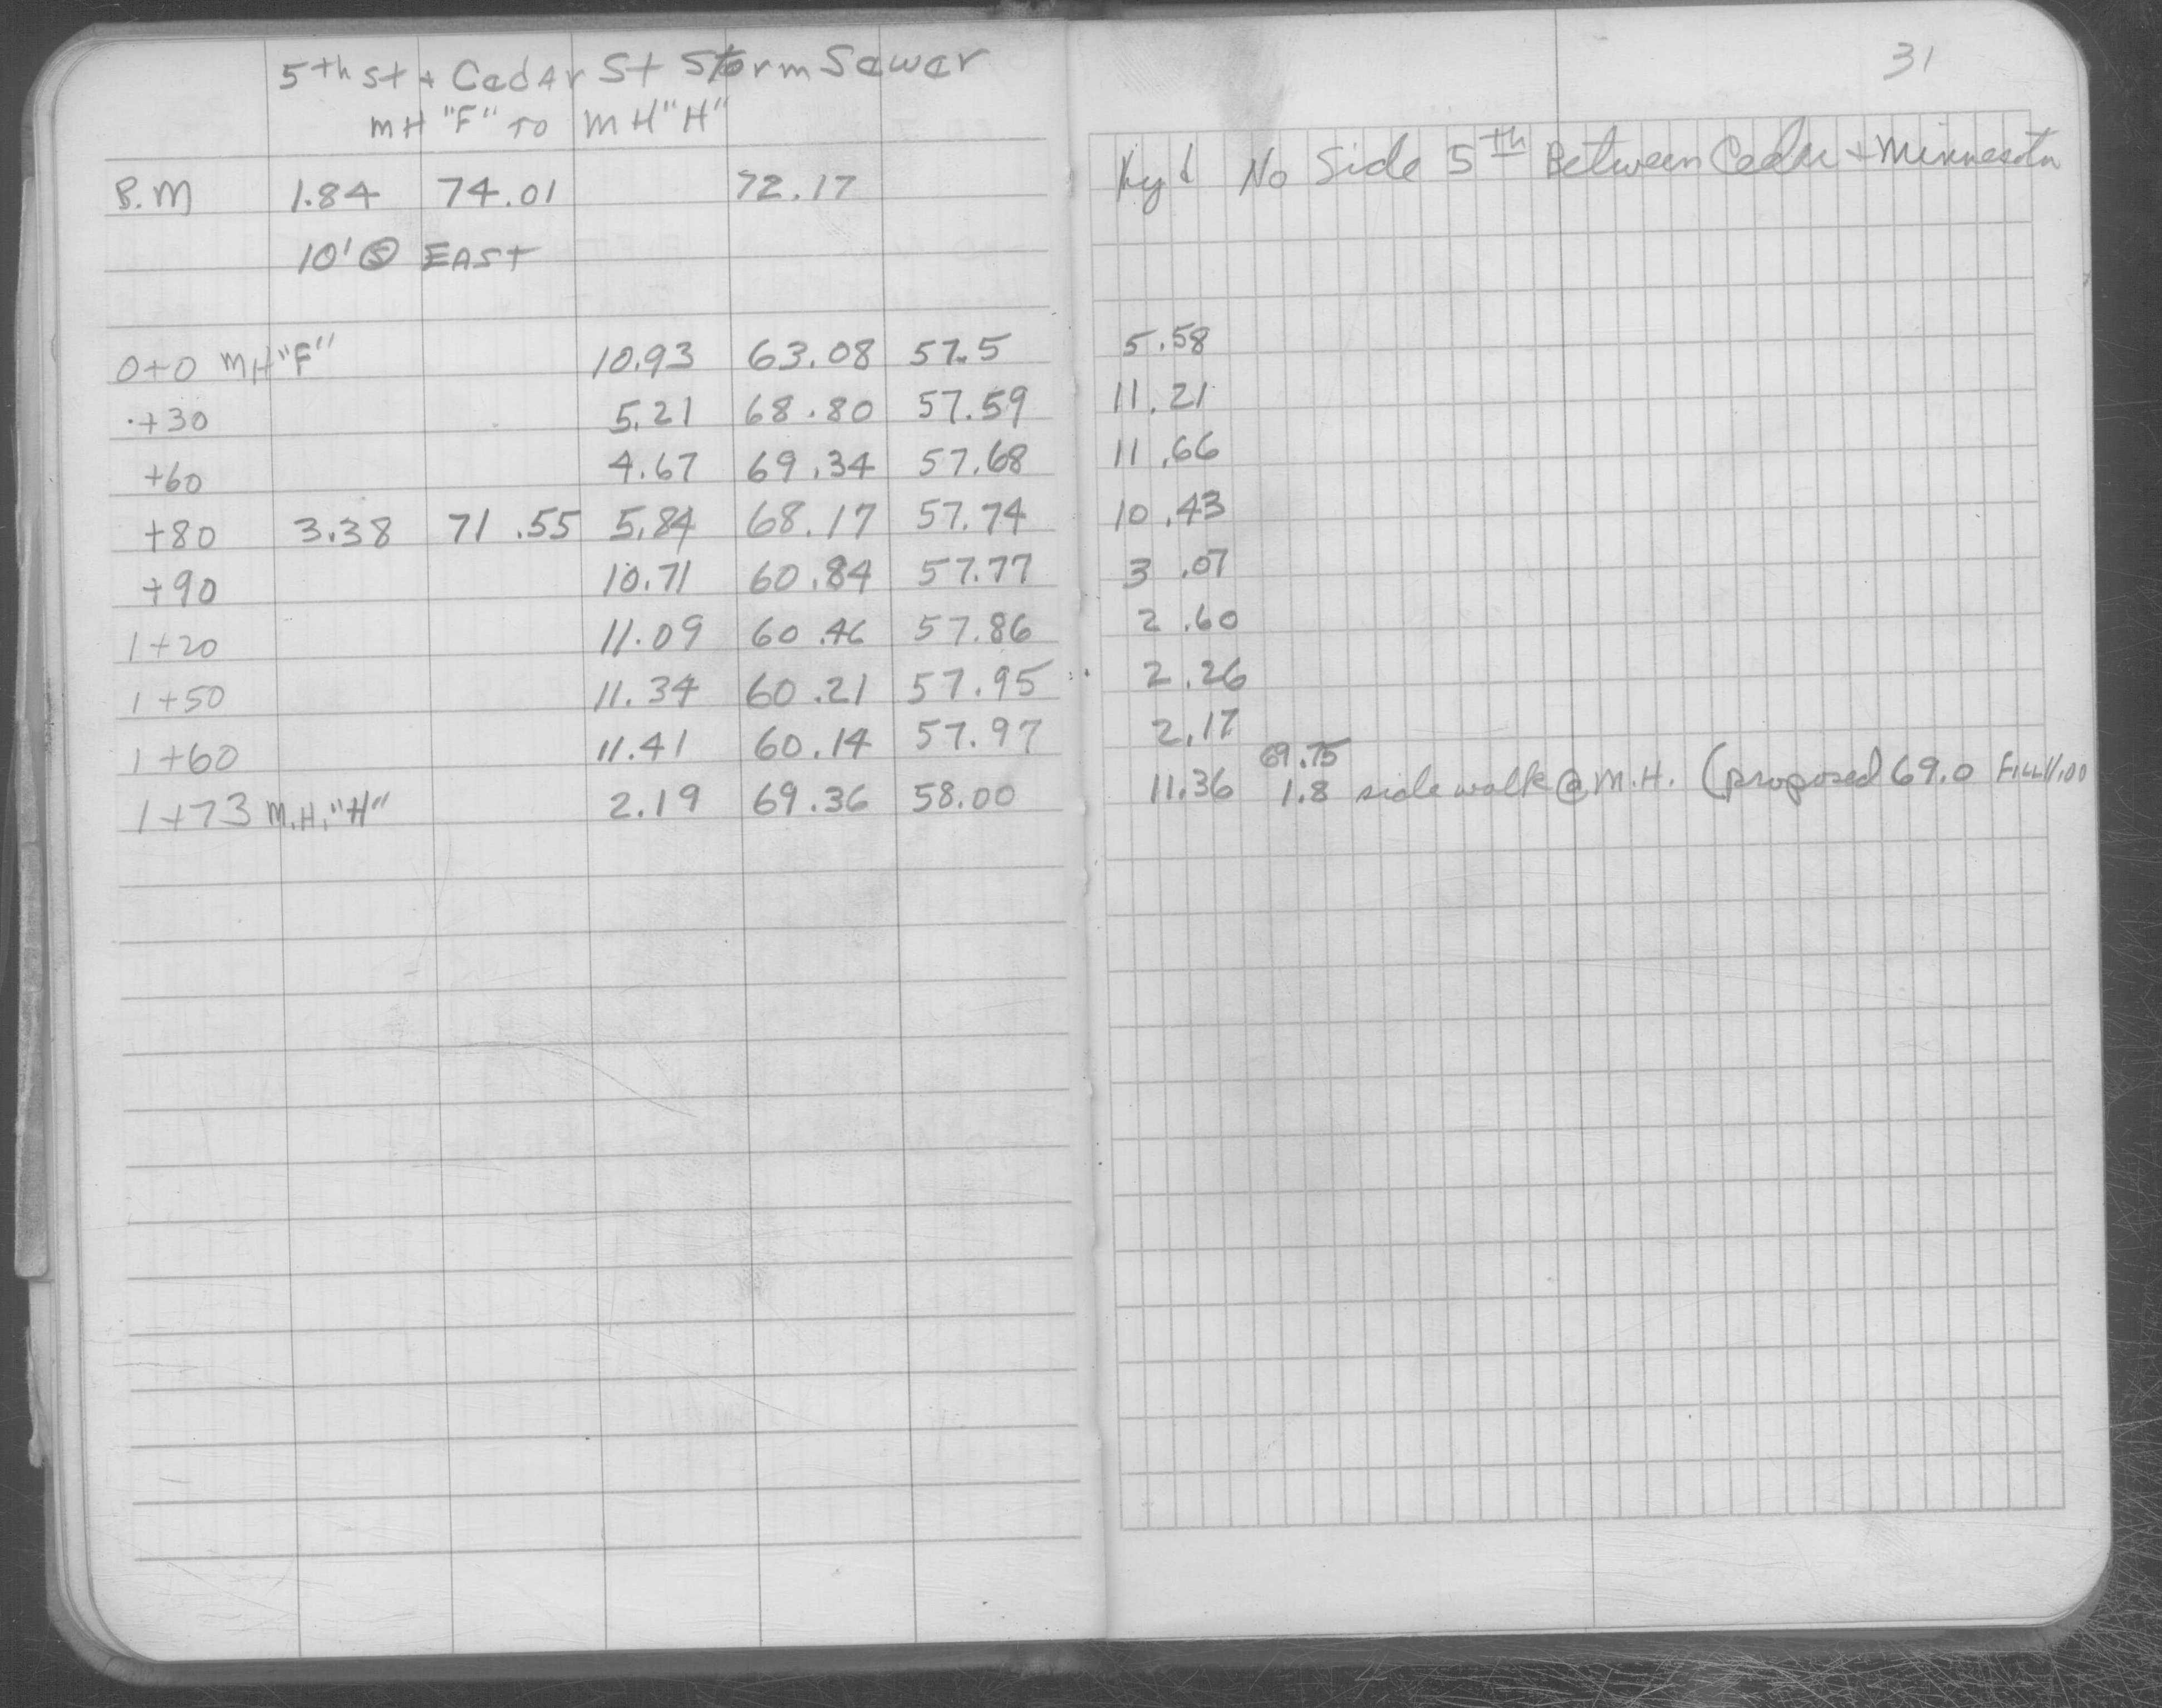 5th St + Cedar St Storm Sewer
MH "F" TO MH "H"
B.M 1.84 74.01 72.17
10' @ EAST
0+0 MH "F" 10.93 63.08 57.5
+30 5.21 68.80 57.59
+60 4.67 69.34 57.68
+80 3.38 71.55 5.84 68.17 57.74
+90 10.71 60.84 57.77
1+20 11.09 60.46 57.86
1+50 11.34 60.21 57.95
1+60 11.41 60.14 57.97
1+73 M.H. "H" 2.19 69.36 58.00
31
Hyd No Side 5th Between Cedar + Minnesota
5.58
11.21
11.66
10.43
3.07
2.60
2.26
2.17
69.75
11.36 1.8 sidewalk @ M.H. (proposed 69.0 FILL 11.00